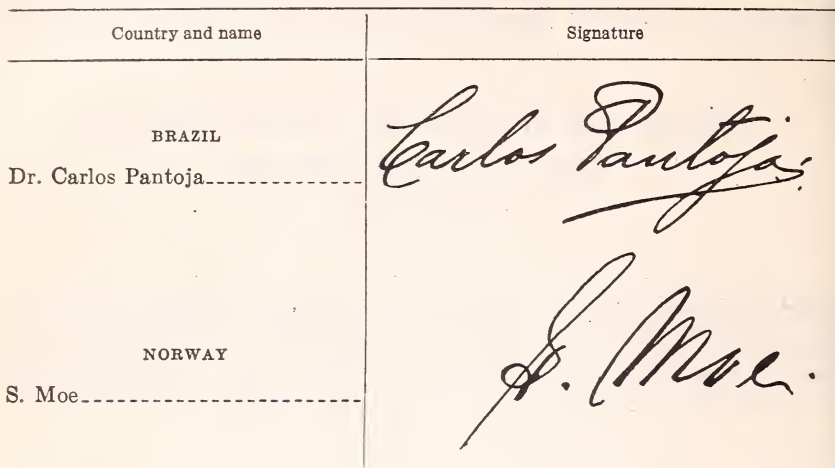 Country and name
Signature
BRAZIL
Dr. Carlos Pantoja
Carlos Pantoja
NORWAY
S. Moe
S. Moe.